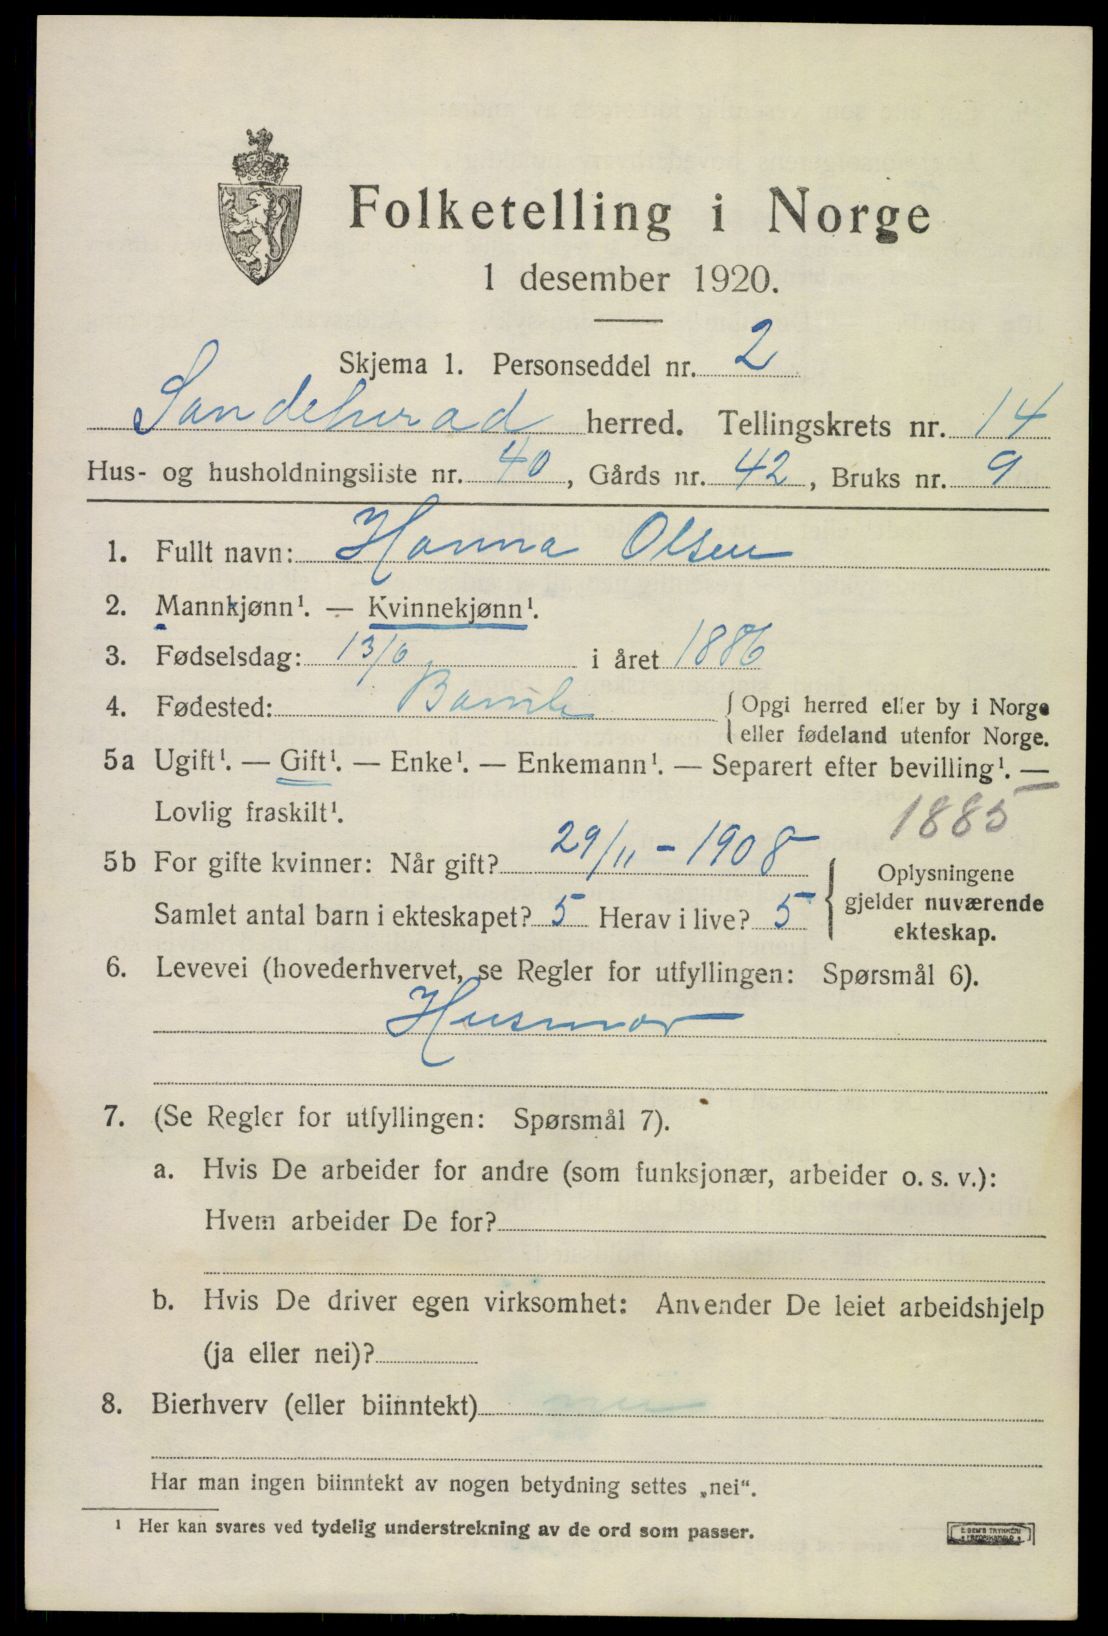 Folketelling i Norge
1 desember 1920.
Skjema 1. Personseddel nr. 2
Sandeherad herred. Tellingskrets nr. 14
Hus- og husholdningsliste nr. 40, Gårds nr. 42, Bruks nr. 9
1. Fullt navn: Hanna Olsen
2. Mannkjønn¹. — Kvinnekjønn¹.
3. Fødselsdag: 13/6 i året 1886
4. Fødested: Bamle { Opgi herred eller by i Norge
eller fødeland utenfor Norge.
5a Ugift¹. — Gift¹. — Enke¹. — Enkemann¹. — Separert efter bevilling¹. —
Lovlig fraskilt¹.
1885
5b For gifte kvinner: Når gift? 29/11 - 1908
Samlet antal barn i ekteskapet? 5 Herav i live? 5
Oplysningene
gjelder nuværende
ekteskap.
6. Levevei (hovederhvervet, se Regler for utfyllingen: Spørsmål 6).
Husmor
7. (Se Regler for utfyllingen: Spørsmål 7).
a. Hvis De arbeider for andre (som funksjonær, arbeider o. s. v.):
Hvem arbeider De for?
b. Hvis De driver egen virksomhet: Anvender De leiet arbeidshjelp
(ja eller nei)?
8. Bierhverv (eller biinntekt)
Har man ingen biinntekt av nogen betydning settes „nei“.
¹ Her kan svares ved tydelig understrekning av de ord som passer.